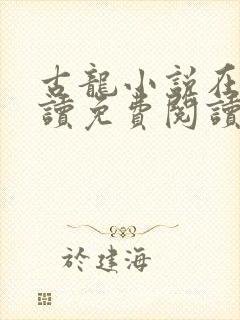 古龍小說在
讀免費閱讀
於建海